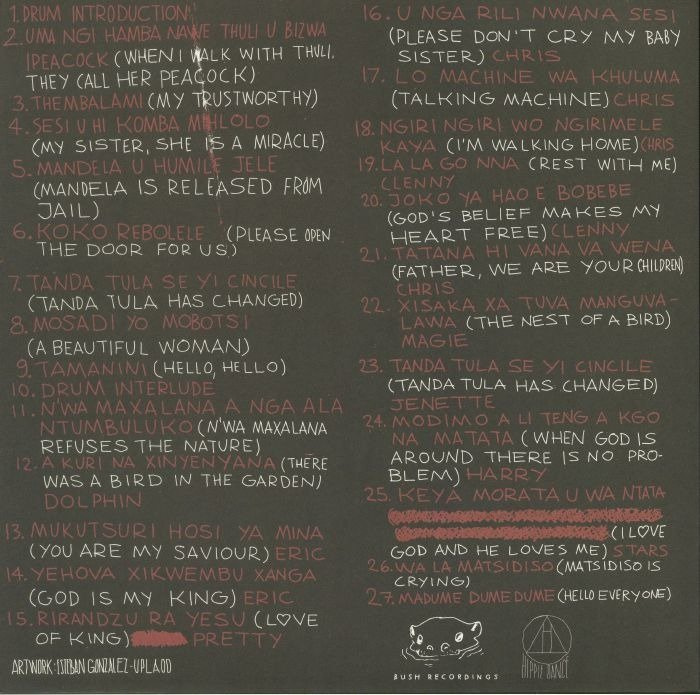 1. DRUM INTRODUCTION
2. UMA NGI HAMBA NAWE THULI U BIZWA
IPEACOCK (WHEN I WALK WITH THULI,
THEY CALL HER PEACOCK)
3. THEMBALAMI (MY TRUSTWORTHY)
4. SESI U HI KOMBA MIHLOLO
(MY SISTER, SHE IS A MIRACLE)
5. MANDELA U HUMILE JELE
(MANDELA IS RELEASED FROM
JAIL)
6. KOKO REBOLELE (PLEASE OPEN
THE DOOR FOR US)
7. TANDA TULA SE YI CINCILE
(TANDA TULA HAS CHANGED)
8. MOSADI YO MOBOTSI
(A BEAUTIFUL WOMAN)
9. TAMANINI (HELLO, HELLO)
10. DRUM INTERLUDE
11. N'WA MAXALANA A NGA ALA
NTUMBULUKO (N'WA MAXALANA
REFUSES THE NATURE)
12. A KURI NA XINYENYANA (THERE
WAS A BIRD IN THE GARDEN)
DOLPHIN
13. MUKUTSURI HOSI YA MINA
(YOU ARE MY SAVIOUR) ERIC
14. YEHOVA XIKWEMBU XANGA
(GOD IS MY KING) ERIC
15. RIRANDZU RA YESU (L♡VE
OF KING) PRETTY
ARTWORK: ESTEBAN GONZALEZ - UPLAOD
16. U NGA RILI NWANA SESI
(PLEASE DON'T CRY MY BABY
SISTER) CHRIS
17. LO MACHINE WA KHULUMA
(TALKING MACHINE) CHRIS
18. NGIRI NGIRI WO NGIRIMELE
KAYA (I'M WALKING HOME) CHRIS
19. LA LA GO NNA (REST WITH ME)
CLENNY
20. JOKO YA HAO E BOBEBE
(GOD'S BELIEF MAKES MY
HEART FREE) CLENNY
21. TATANA HI VANA VA WENA
(FATHER, WE ARE YOUR CHILDREN)
CHRIS
22. XISAKA XA TUVA MANGUVA-
LAWA (THE NEST OF A BIRD)
MAGIE
23. TANDA TULA SE YI CINCILE
(TANDA TULA HAS CHANGED)
JENETTE
24. MODIMO A LI TENG A KGO
NA MATATA (WHEN GOD IS
AROUND THERE IS NO PRO-
BLEM) HARRY
25. KEYA MORATA U WA NTATA
(I L♡VE
GOD AND HE LOVES ME) STARS
26. WA LA MATSIDISO (MATSIDISO IS
CRYING)
27. MADUME DUME DUME (HELLO EVERYONE)
BUSH RECORDINGS
HIPPIE DANCE